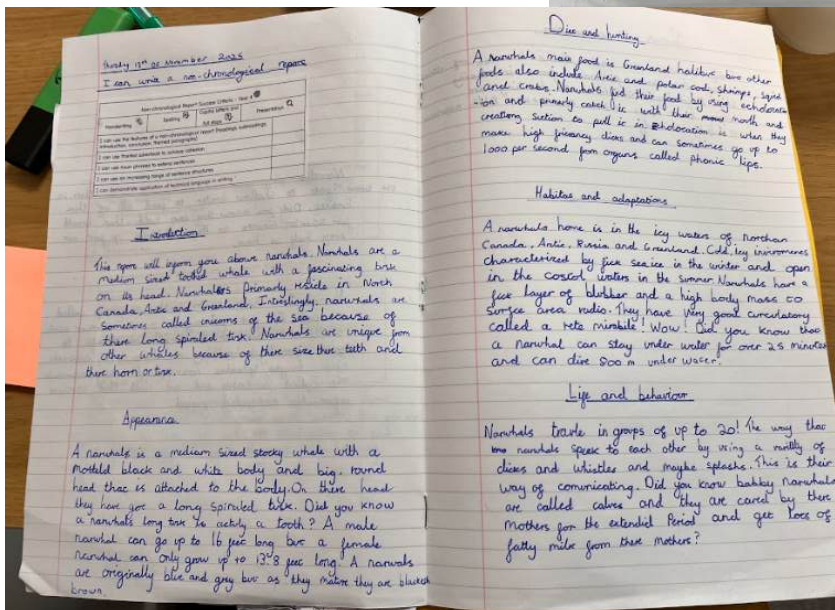 Thursday 13th of November 2025
I can write a non-chronological report
Non-chronological Report Success Criteria - Year 4
Handwriting
Spelling
Capital letters and
full stops
Presentation
I can use the features of a non-chronological report (headings, subheadings,
introduction, conclusion, themed paragraphs)
I can use fronted adverbials to achieve cohesion
I can use noun phrases to extend sentences
I can use an increasing range of sentence structures
I can demonstrate application of technical language in writing
Introduction
This report will inform you about narwhals. Narwhals are a
medium sized toothed whale with a fascinating tusk
on its head. Narwhals primarly reside in North
Canada, Artic and Greanland. Interstingly, narwhals are
sometimes called unicorns of the sea because of
there long spiraled tusk. Narwhals are unique from
other whales because of there size there teeth and
there horn or tusk.
Appearance
A narwhals is a mediam sized stocky whale with a
mottald black and white body and big, round
head that is attached to the body. On there head
they have got a long spiraled tusk. Did you know
a narwhals long tusk is actuly a tooth? A male
narwhal can go up to 16 feet long but a female
narwhal can only grow up to 13.8 feet long. A narwals
are originally blue and grey but as they mature they are blackish
brown.
Diet and hunting
A narwhals main food is Greenland halibut but other
foods also include Artic and polar cod, shrimps, sqid
and crabs. Narwhals find their food by using echolocati
-on and primerly catch it with their mouth and
creating suction to pull it in. Echolocation is when they
make high friquency clicks and can sometimes go up to
1000 per second from organs called phonic lips.
Habitat and adaptations
A narwhals home is in the icy waters of northan
Canada, Artic, Russia and Greenland. Cold, icy inviroments
characterized by fick sea ice in the winter and open
in the costol waters in the summer. Narwhals have a
fick layer of blubber and a high body mass to
surfce area radio. They have very good curculatory
called a rete mirabile! Wow! Did you know that
a narwhal can stay under water for over 25 minutes
and can dive 800 m under water.
Life and behaviour
Narwhals travle in groups of up to 20! The way that
narwhals speek to each other by using a varitly of
clicks and whistles and maybe splashs. This is their
way of comunicating. Did you know babby narwhals
are called calves and they are cared by there
mothers for the extendid Period and get lots of
fatty milk from there mothers?